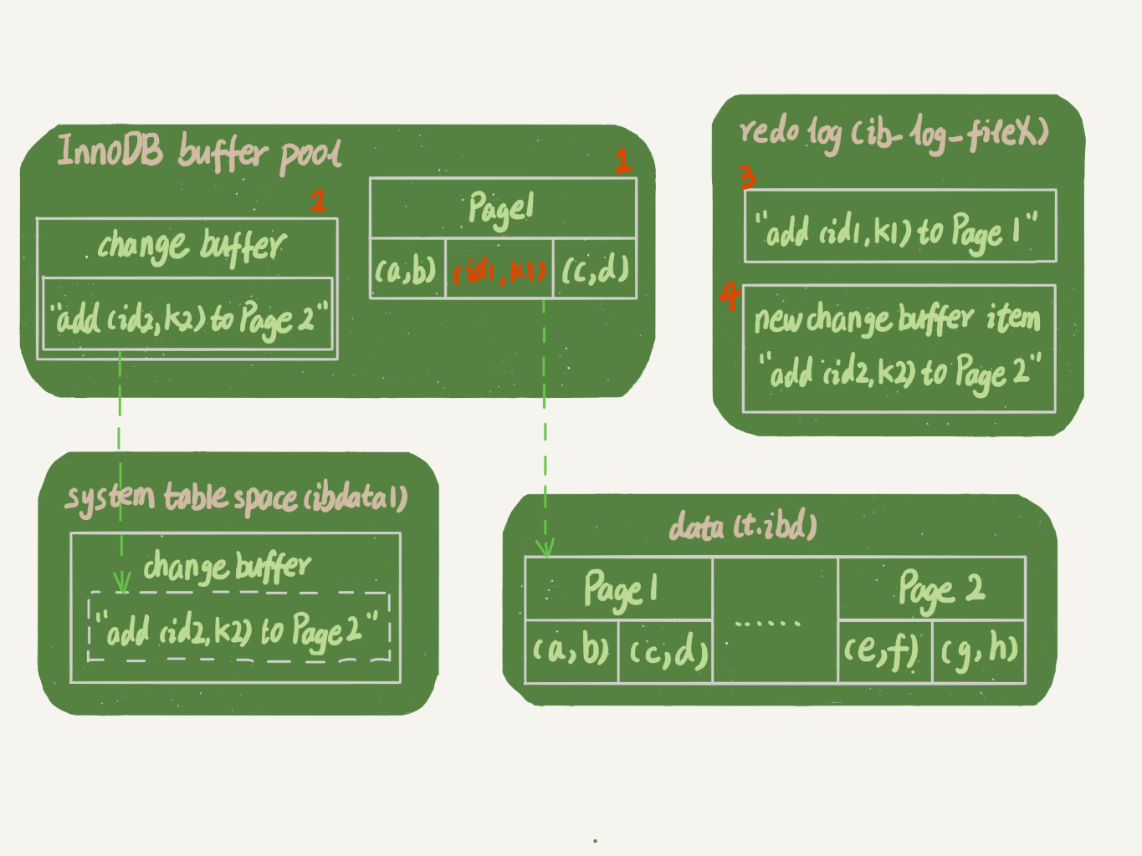 InnoDB buffer pool
1
2
Page1
change buffer
(a,b) (id1,k1) (c,d)
"add (id2,k2) to Page 2"
redo log (ib_log_fileX)
3
"add (id1,k1) to Page 1"
4
new change buffer item
"add (id2,k2) to Page 2"
system table space (ibdata1)
change buffer
"add (id2,k2) to Page2"
data (t.ibd)
Page1 ...... Page 2
(a,b) (c,d) (e,f) (g,h)